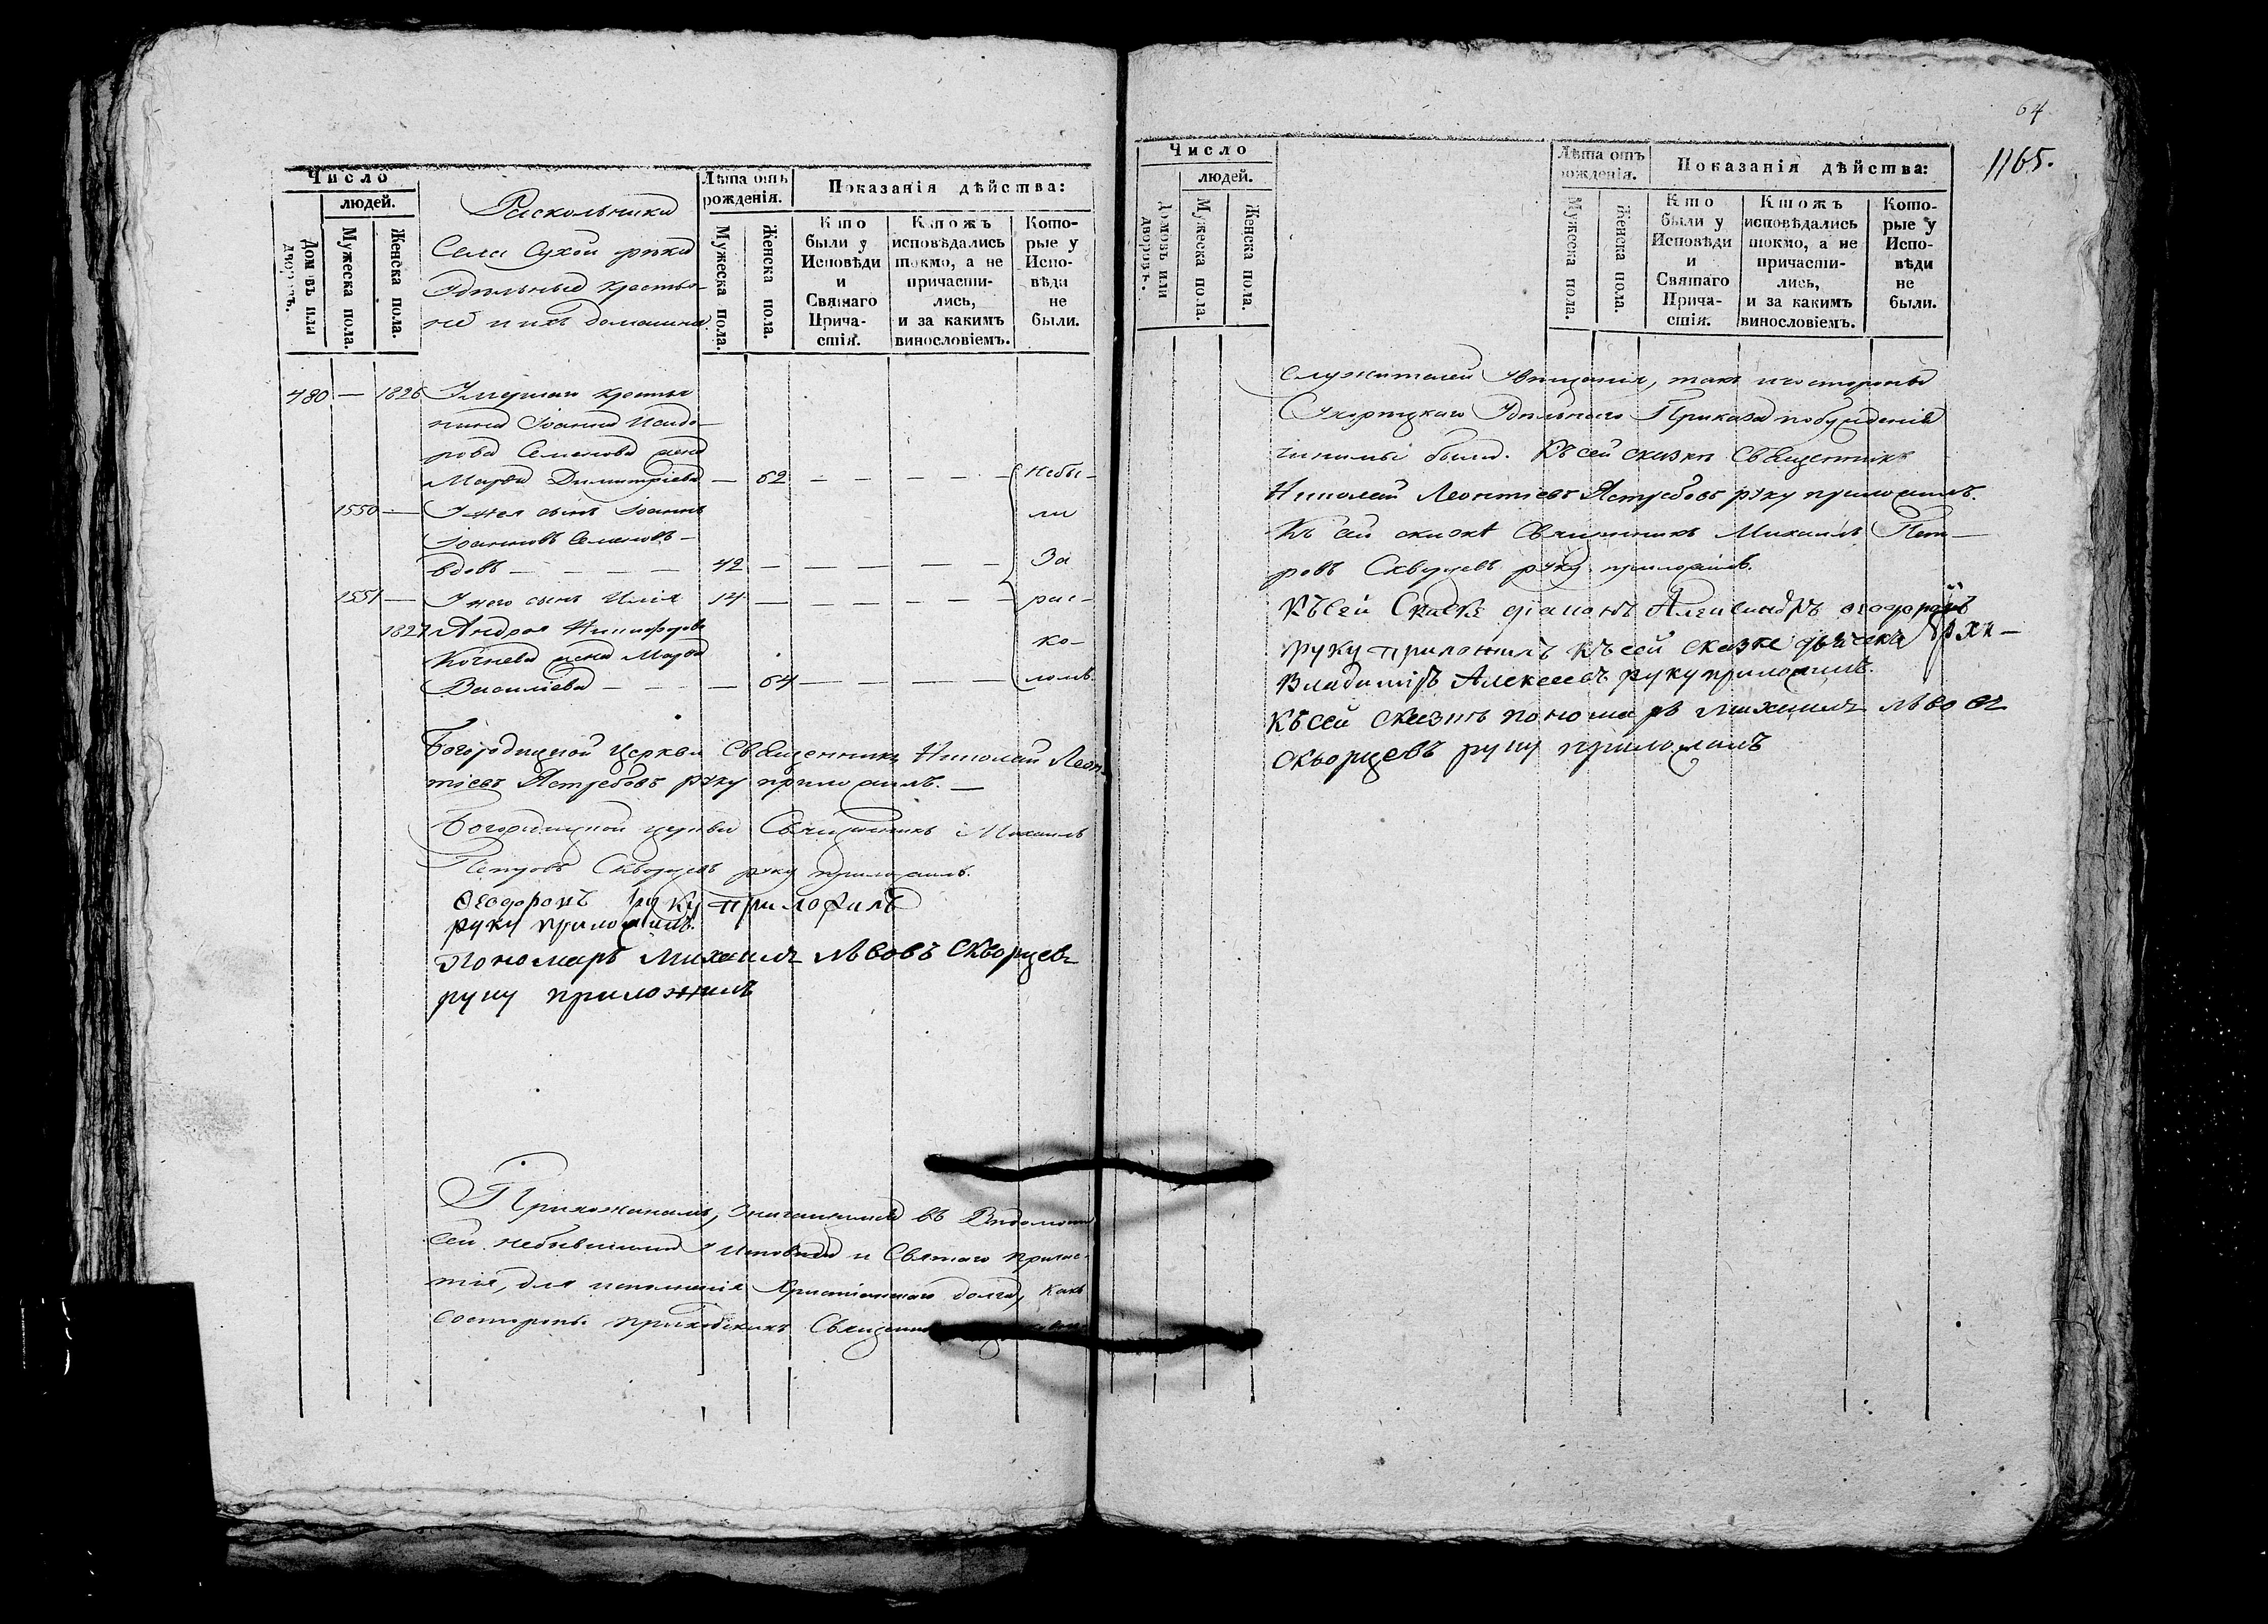 Число
людей.
Домовъ или дворовъ.
Мужеска пола.
Женска пола.
Раскольники
Села Сухой рѣки
Удѣльные крестья-
не и ихъ домашние
Лѣта отъ рожденія.
Мужеска пола.
Женска пола.
Показанія дѣйства:
Кто были у Исповѣди и Святаго Прича-стія.
Ктожъ исповѣдались токмо, а не причасти-лись, и за какимъ винословіемъ.
Кото-рые у Испо-вѣди не были.
480 — 1826 Умершаго крестья
нина Іоанна Исидо-
рова Семенова жена
Марѳа Димитріева — 62 — — — — — небы-
1550 — У нея сынъ Іоаннъ ли
Іоанновъ Семеновъ —
вдовъ — — — — 42 — — — — — За
1551 — У него сынъ Илія 14 — — — — — рас-
1827 Андрея Никифорова
Кочнева жена Марѳа ко-
Василіева — — — — 64 — — — — ломъ.
Богородицкой Церкви Священникъ Николай Леон-
тіевъ Ястребовъ руку приложилъ. —
Богородицкой церкви Священникъ Михаилъ
Петровъ Скворцевъ руку приложилъ.
руку приложилъ
руку приложилъ.
Пономарь Михаилъ Львовъ Скворцевъ
руку приложилъ
Прихожанамъ, значащимся въ Вѣдомости
сей небывшими у Исповѣди и Святаго Причас-
тія, для исполненія Христіанскаго долга, какъ
состороны приходскихъ
64
1165.
Число
людей.
Домовъ или дворовъ.
Мужеска пола.
Женска пола.
Лѣта отъ рожденія.
Мужеска пола.
Женска пола.
Показанія дѣйства:
Кто были у Исповѣди и Святаго Прича-стія.
Ктожъ исповѣдались токмо, а не причасти-лись, и за какимъ винословіемъ.
Кото-рые у Испо-вѣди не были.
служителей увѣщанія, такъ и со стороны
Удѣльнаго Приказа побужденія
чинимы были. Къ сей сказкѣ Священникъ
Николай Леонтіевъ Ястребовъ руку приложилъ.
Къ сей сказкѣ Священникъ Михаилъ Пет-
ровъ Скворцевъ руку приложилъ.
Къ сей Сказкѣ діаконъ Александръ
руку приложилъ Къ сей сказке
Владиміръ Алексеевъ руку приложилъ.
Къ сей сказкѣ пономарь Михаилъ Львовъ
Скворцевъ руку приложилъ